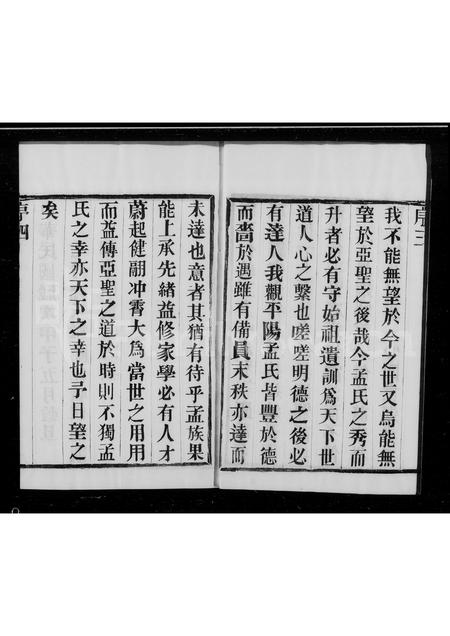 序三
我不能無望於今之世又烏能無
望於亞聖之後哉今孟氏之秀而
升者必有守始祖遺訓爲天下世
道人心之繫也嗟嗟明德之後必
有達人我觀平陽孟氏皆豐於德
而嗇於遇雖有備員末秩亦達而
未達也意者其猶有待乎孟族果
能上承先緒益修家學必有人才
蔚起健翮冲霄大爲當世之用用
而益傳亞聖之道於時則不獨孟
氏之幸亦天下之幸也予日望之
矣
序四